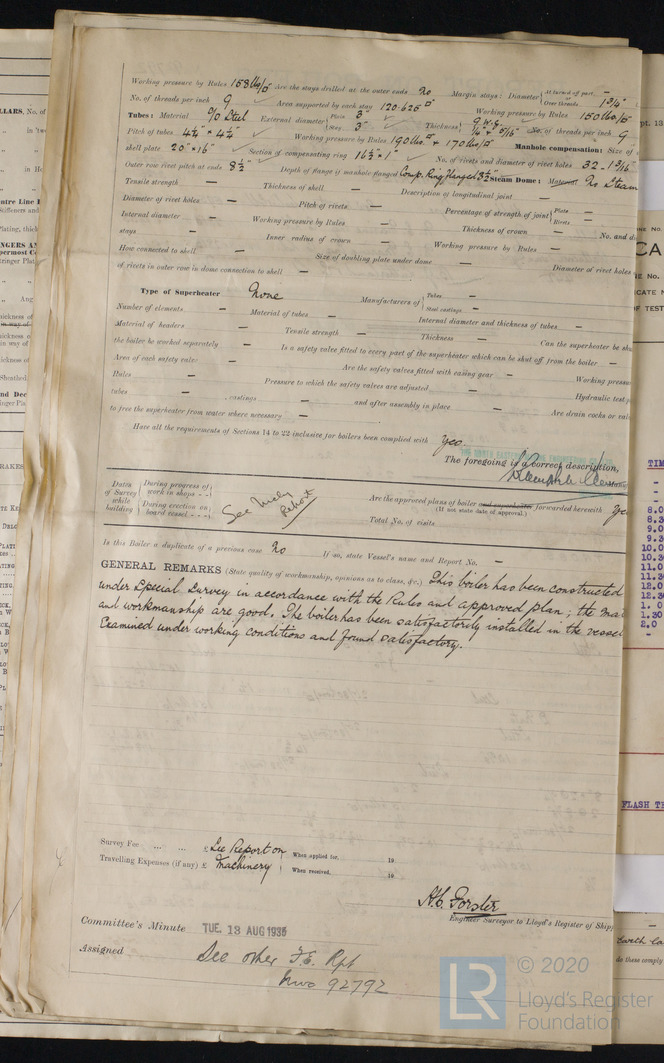 Working pressure by Rules 158 lbs/□" Are the stays drilled at the outer ends No Margin stays: Diameter { At turned off part, — or Over threads 1 3/4"
No. of threads per inch 9 Area supported by each stay 120.625 □" Working pressure by Rules 150 lbs/□"
Tubes: Material S/O Steel External diameter { Plain 3" Stay 3" Thickness { 9 W.G. 1/4" + 5/16" No. of threads per inch 9
Pitch of tubes 4 1/4" × 4 1/4" Working pressure by Rules 190 lbs/□" + 170 lbs/□" Manhole compensation: Size of
shell plate 20" × 16" Section of compensating ring 16 1/2" × 1" No. of rivets and diameter of rivet holes 32 - 1 3/16"
Outer row rivet pitch at ends 8 1/2" Depth of flange if manhole flanged Comp. Ring flanged 3 1/2" Steam Dome: Material No Steam
Tensile strength — Thickness of shell — Description of longitudinal joint —
Diameter of rivet holes — Pitch of rivets — Percentage of strength of joint { Plate — Rivets —
Internal diameter — Working pressure by Rules — Thickness of crown — No. and di
stays — Inner radius of crown — Working pressure by Rules —
How connected to shell — Size of doubling plate under dome — Diameter of rivet holes
of rivets in outer row in dome connection to shell —
Type of Superheater None Manufacturers of { Tubes — Steel castings —
Number of elements — Material of tubes — Internal diameter and thickness of tubes —
Material of headers — Tensile strength — Thickness — Can the superheater be shu
the boiler be worked separately — Is a safety valve fitted to every part of the superheater which can be shut off from the boiler —
Area of each safety valve — Are the safety valves fitted with easing gear — Working pressu
Rules — Pressure to which the safety valves are adjusted — Hydraulic test p
tubes — , castings — and after assembly in place — Are drain cocks or valv
to free the superheater from water where necessary —
Have all the requirements of Sections 14 to 22 inclusive for boilers been complied with Yes.
The foregoing is a correct description,
Dates of Survey while building { During progress of work in shops - - During erection on board vessel - - - See Mchy Report
Are the approved plans of boiler and superheater forwarded herewith Yes
(If not state date of approval.)
Total No. of visits
Is this Boiler a duplicate of a previous case No If so, state Vessel's name and Report No. —
GENERAL REMARKS (State quality of workmanship, opinions as to class, &c.) This boiler has been constructed
under Special Survey in accordance with the Rules and approved plan; the mat
and workmanship are good. The boiler has been satisfactorily installed in the vessel
Examined under working conditions and found satisfactory.
Survey Fee ... ... £ See Report on When applied for, 19
Travelling Expenses (if any) £ Machinery When received, 19
H.C. Forster
Engineer Surveyor to Lloyd's Register of Ship
Committee's Minute TUE. 13 AUG 1935
Assigned See other F.E. Rpt
Nwc 92792
LR © 2020
Lloyd's Register
Foundation